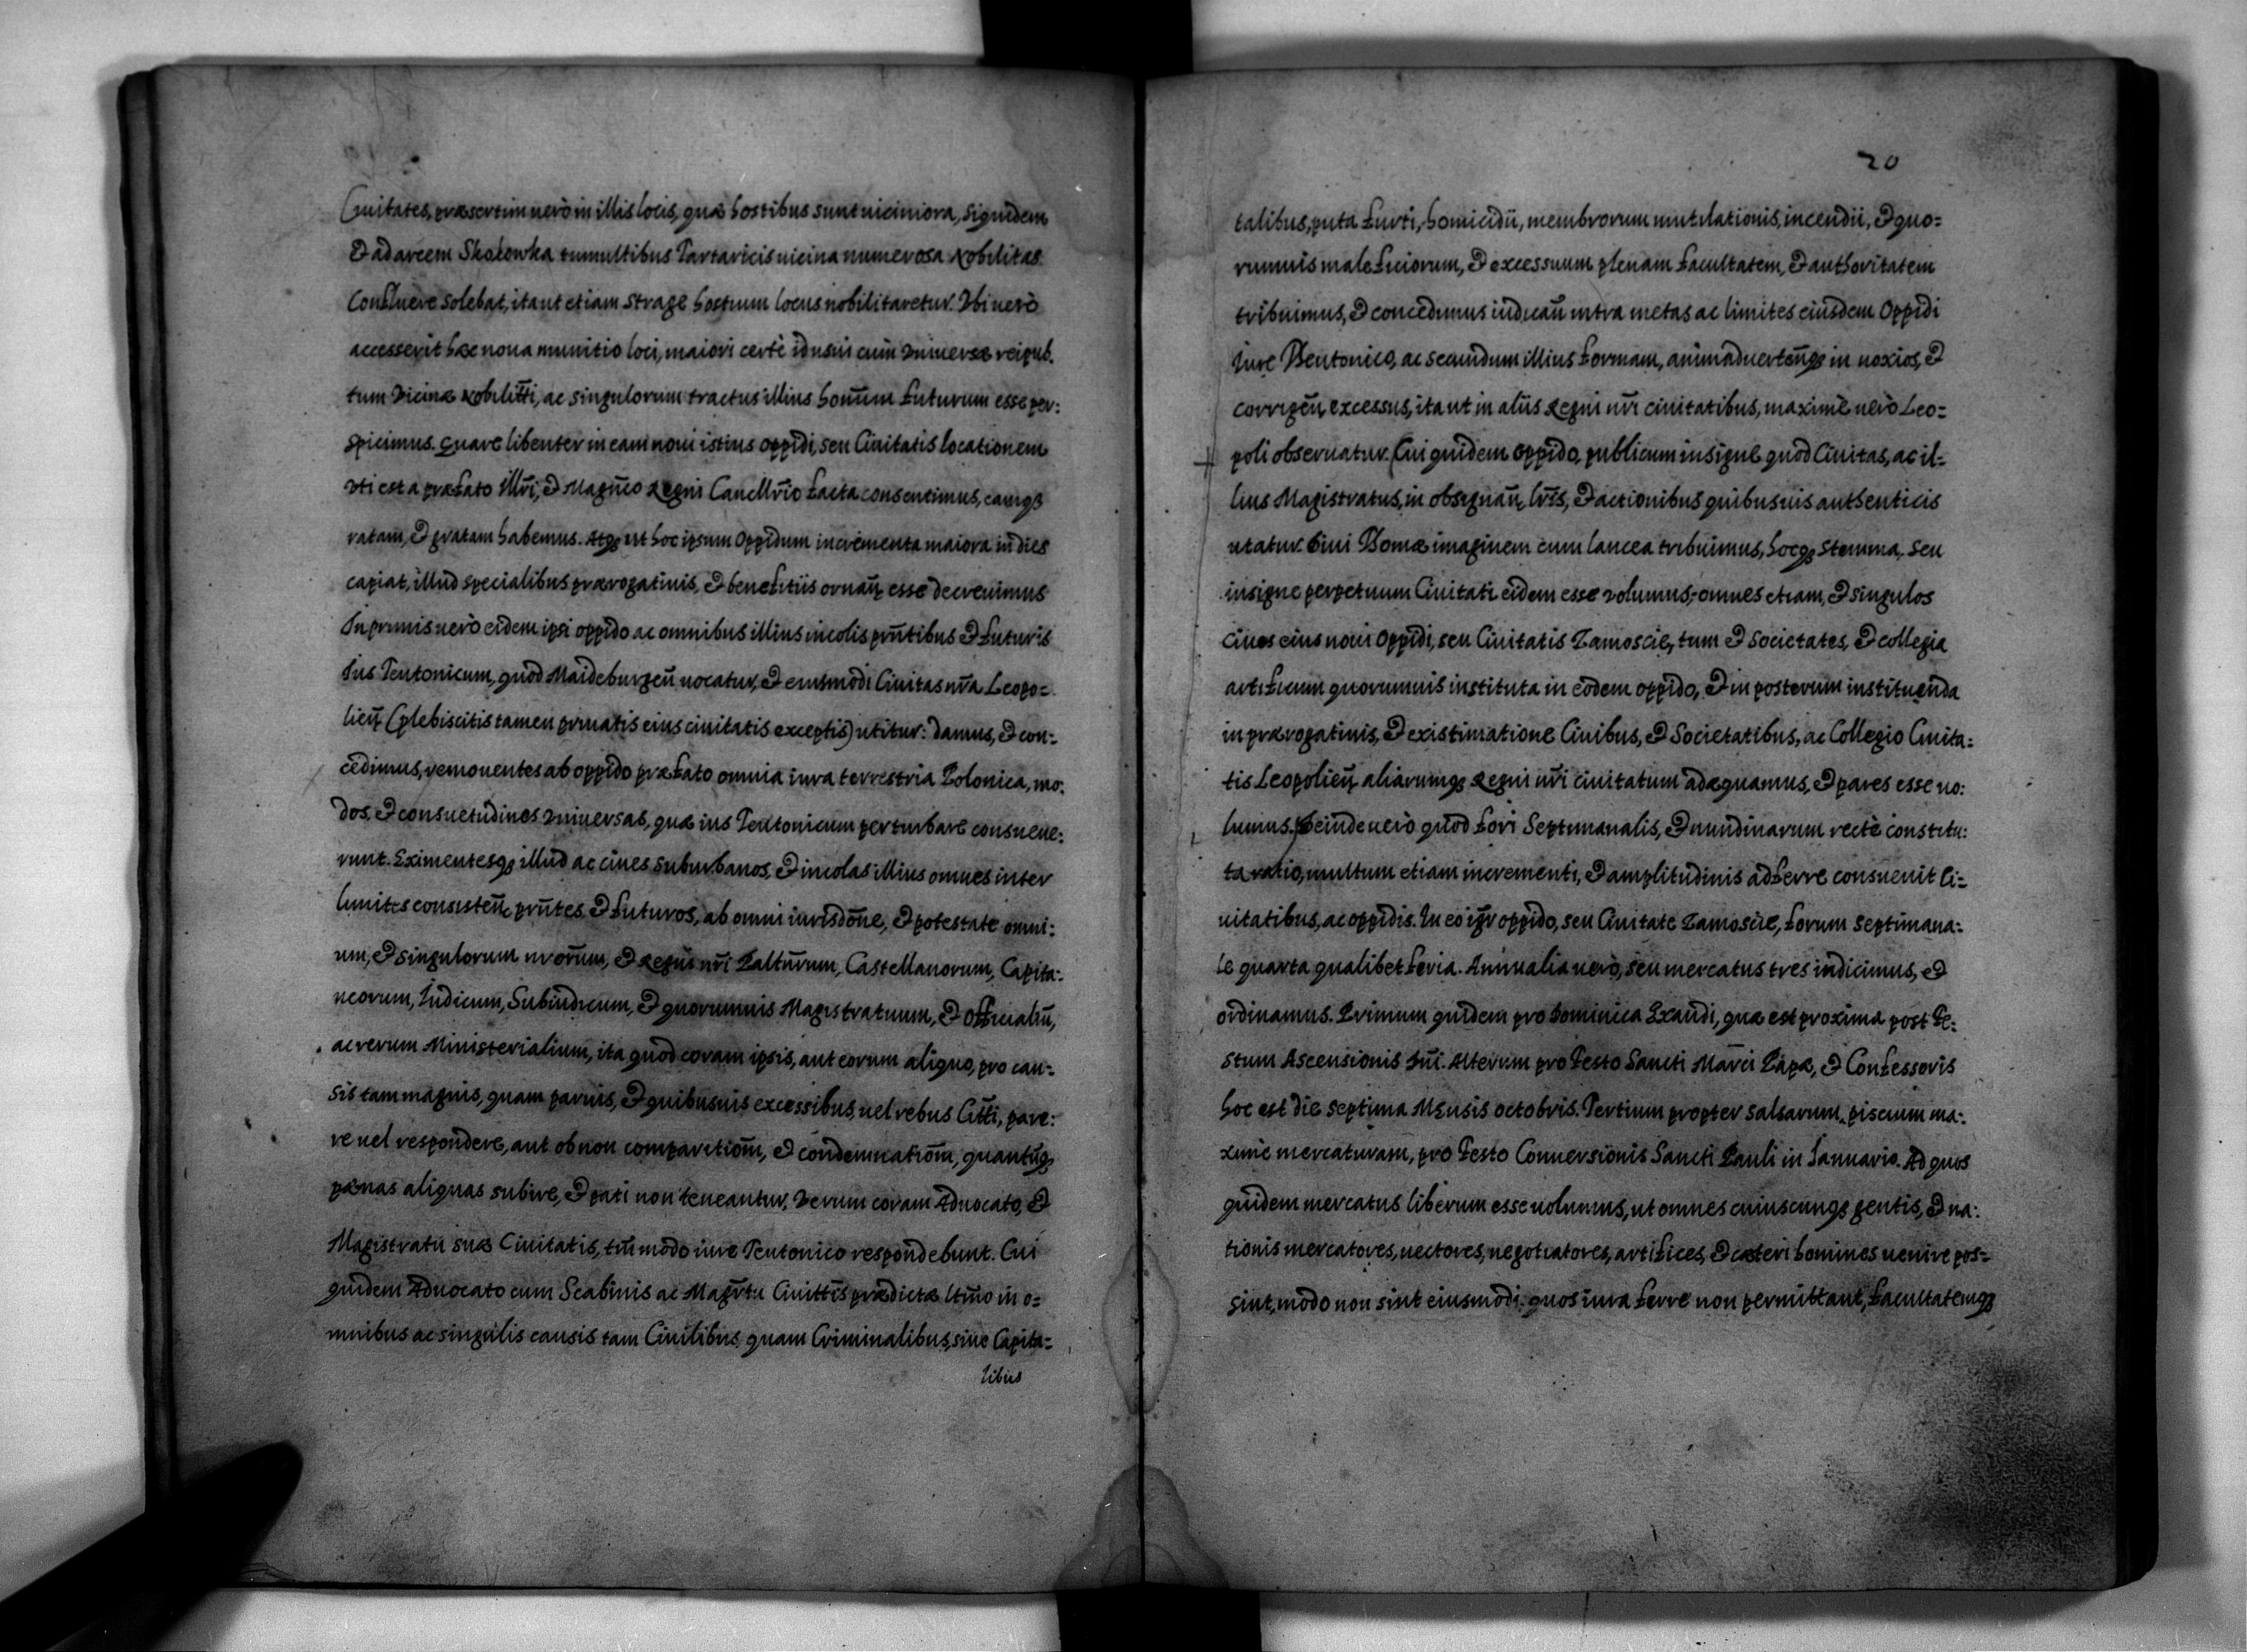 Ciuitates, præsertim uerò in illis locis, quæ hostibus sunt uiciniora, siquidem
& ad arcem Skokowka tumultibus Tartaricis uicina numerosa Nobilitas
confluere solebat, ita ut etiam strage hostium locus nobilitaretur. Vbi uerò
accesserit hæc noua munitio loci, maiori certè id usui cum vniuersæ reipub.
tum vicinæ Nobilitti, ac singulorum tractus illius hominum futurum esse per:
spicimus. Quare libenter in eam noui istius oppidi, seu Ciuitatis locationem
vti est a præfato Illri, & Magnco Regni Cancellrio facta consentimus, eamq3
ratam, & gratam habemus. Atq3 ut hoc ipsum Oppidum incrementa maiora in dies
capiat, illud specialibus prærogatiuis, & benefitiis ornan esse decreuimus
Inprimis uerò eidem ipsi oppido ac omnibus illius incolis prntibus & futuris
Ius Teutonicum, quod Maideburgen uocatur, & eiusmodi Ciuitas nra Leopo=
lien (plebiscitis tamen priuatis eius ciuitatis exceptis) utitur: damus, & con=
cedimus, remouentes ab oppido præfato omnia iura terrestria Polonica, mo:
dos, & consuetudines vniuersas, quæ ius Teutonicum perturbare consueue:
runt. Eximentesq3 illud ac ciues suburbanos, & incolas illius omnes inter
limites consisten prntes & futuros, ab omni iurisdone, & potestate omni:
um, & singulorum nrorum, & Regni nri Palturum, Castellanorum, Capita:
neorum, Iudicum, Subiudicum, & quorumuis Magistratuum, & Officialiu,
ac rerum Ministerialium, ita quod coram ipsis, aut eorum aliquo, pro cau=
sis tam magnis, quam paruis, & quibusuis excessibus, uel rebus Citti, pare:
re uel respondere, aut ob non comparitiom, & condemnatiom, quantuq3
pænas aliquas subire, & pati non teneantur. Verum coram Aduocato, &
Magistratu suæ Ciuitatis, tmmodo iure Teutonico respondebunt. Cui
quidem Aduocato cum Scabinis ac Magrtu Ciuittis prædictæ ltmo in o=
mnibus ac singulis causis tam Ciuilibus quam Criminalibus, siue Capita=
libus
20
talibus, puta furti, homicidii, membrorum mutilationis, incendii, & quo=
rumuis maleficiorum, & excessuum plenam facultatem, & authoritatem
tribuimus, & concedimus iudican intra metas ac limites eiusdem Oppidi
Iure Theutonico, ac secundum illius formam, animaduertenq3 in noxios, &
corrigen excessus, ita ut in aliis Regni nri ciuitatibus, maximè uerò Leo=
poli obseruatur. Cui quidem oppido, publicum insigne quod Ciuitas, ac il=
lius Magistratus, in obsignan lris, & actionibus quibusuis authenticis
utatur. Diui Thomæ imaginem cum lancea tribuimus, hocq3 stemma, seu
insigne perpetuum Ciuitati eidem esse volumus, omnes etiam, & singulos
ciues eius noui oppidi, seu Ciuitatis Zamoscie, tum & societates, & collegia
artificum quorumuis instituta in eodem oppido, & in posterum instituenda
in prærogatiuis, & existimatione Ciuibus, & Societatibus, ac Collegio Ciuita=
tis Leopolien aliarumq3 Regni nri ciuitatum adæquamus, & pares esse uo:
lumus. Deinde uerò quod fori Septimanalis, & nundinarum rectè constitu:
ta ratio, multum etiam incrementi, & amplitudinis adferre consueuit Ci=
uitatibus, ac oppidis. In eo igr oppido, seu Ciuitate Zamoscie, forum septimana=
le quarta qualibet feria. Annualia uerò, seu mercatus tres indicimus, &
ordinamus. Primum quidem pro Dominica Exaudi, quæ est proxima post Fe:
stum Ascensionis Dni. Alterum pro Festo Sancti Marci Papæ, & Confessoris
hoc est die septima Mensis octobris. Tertium propter salsarum piscium ma:
ximè mercaturam, pro Festo Conuersionis Sancti Pauli in Ianuario. Ad quos
quidem mercatus liberum esse uolumus, ut omnes cuiuscunq3 gentis, & na:
tionis mercatores, uectores, negotiatores, artifices, & cæteri homines uenire pos=
sint, modo non sint eiusmodi quos iura ferre non permittant, facultatemq3